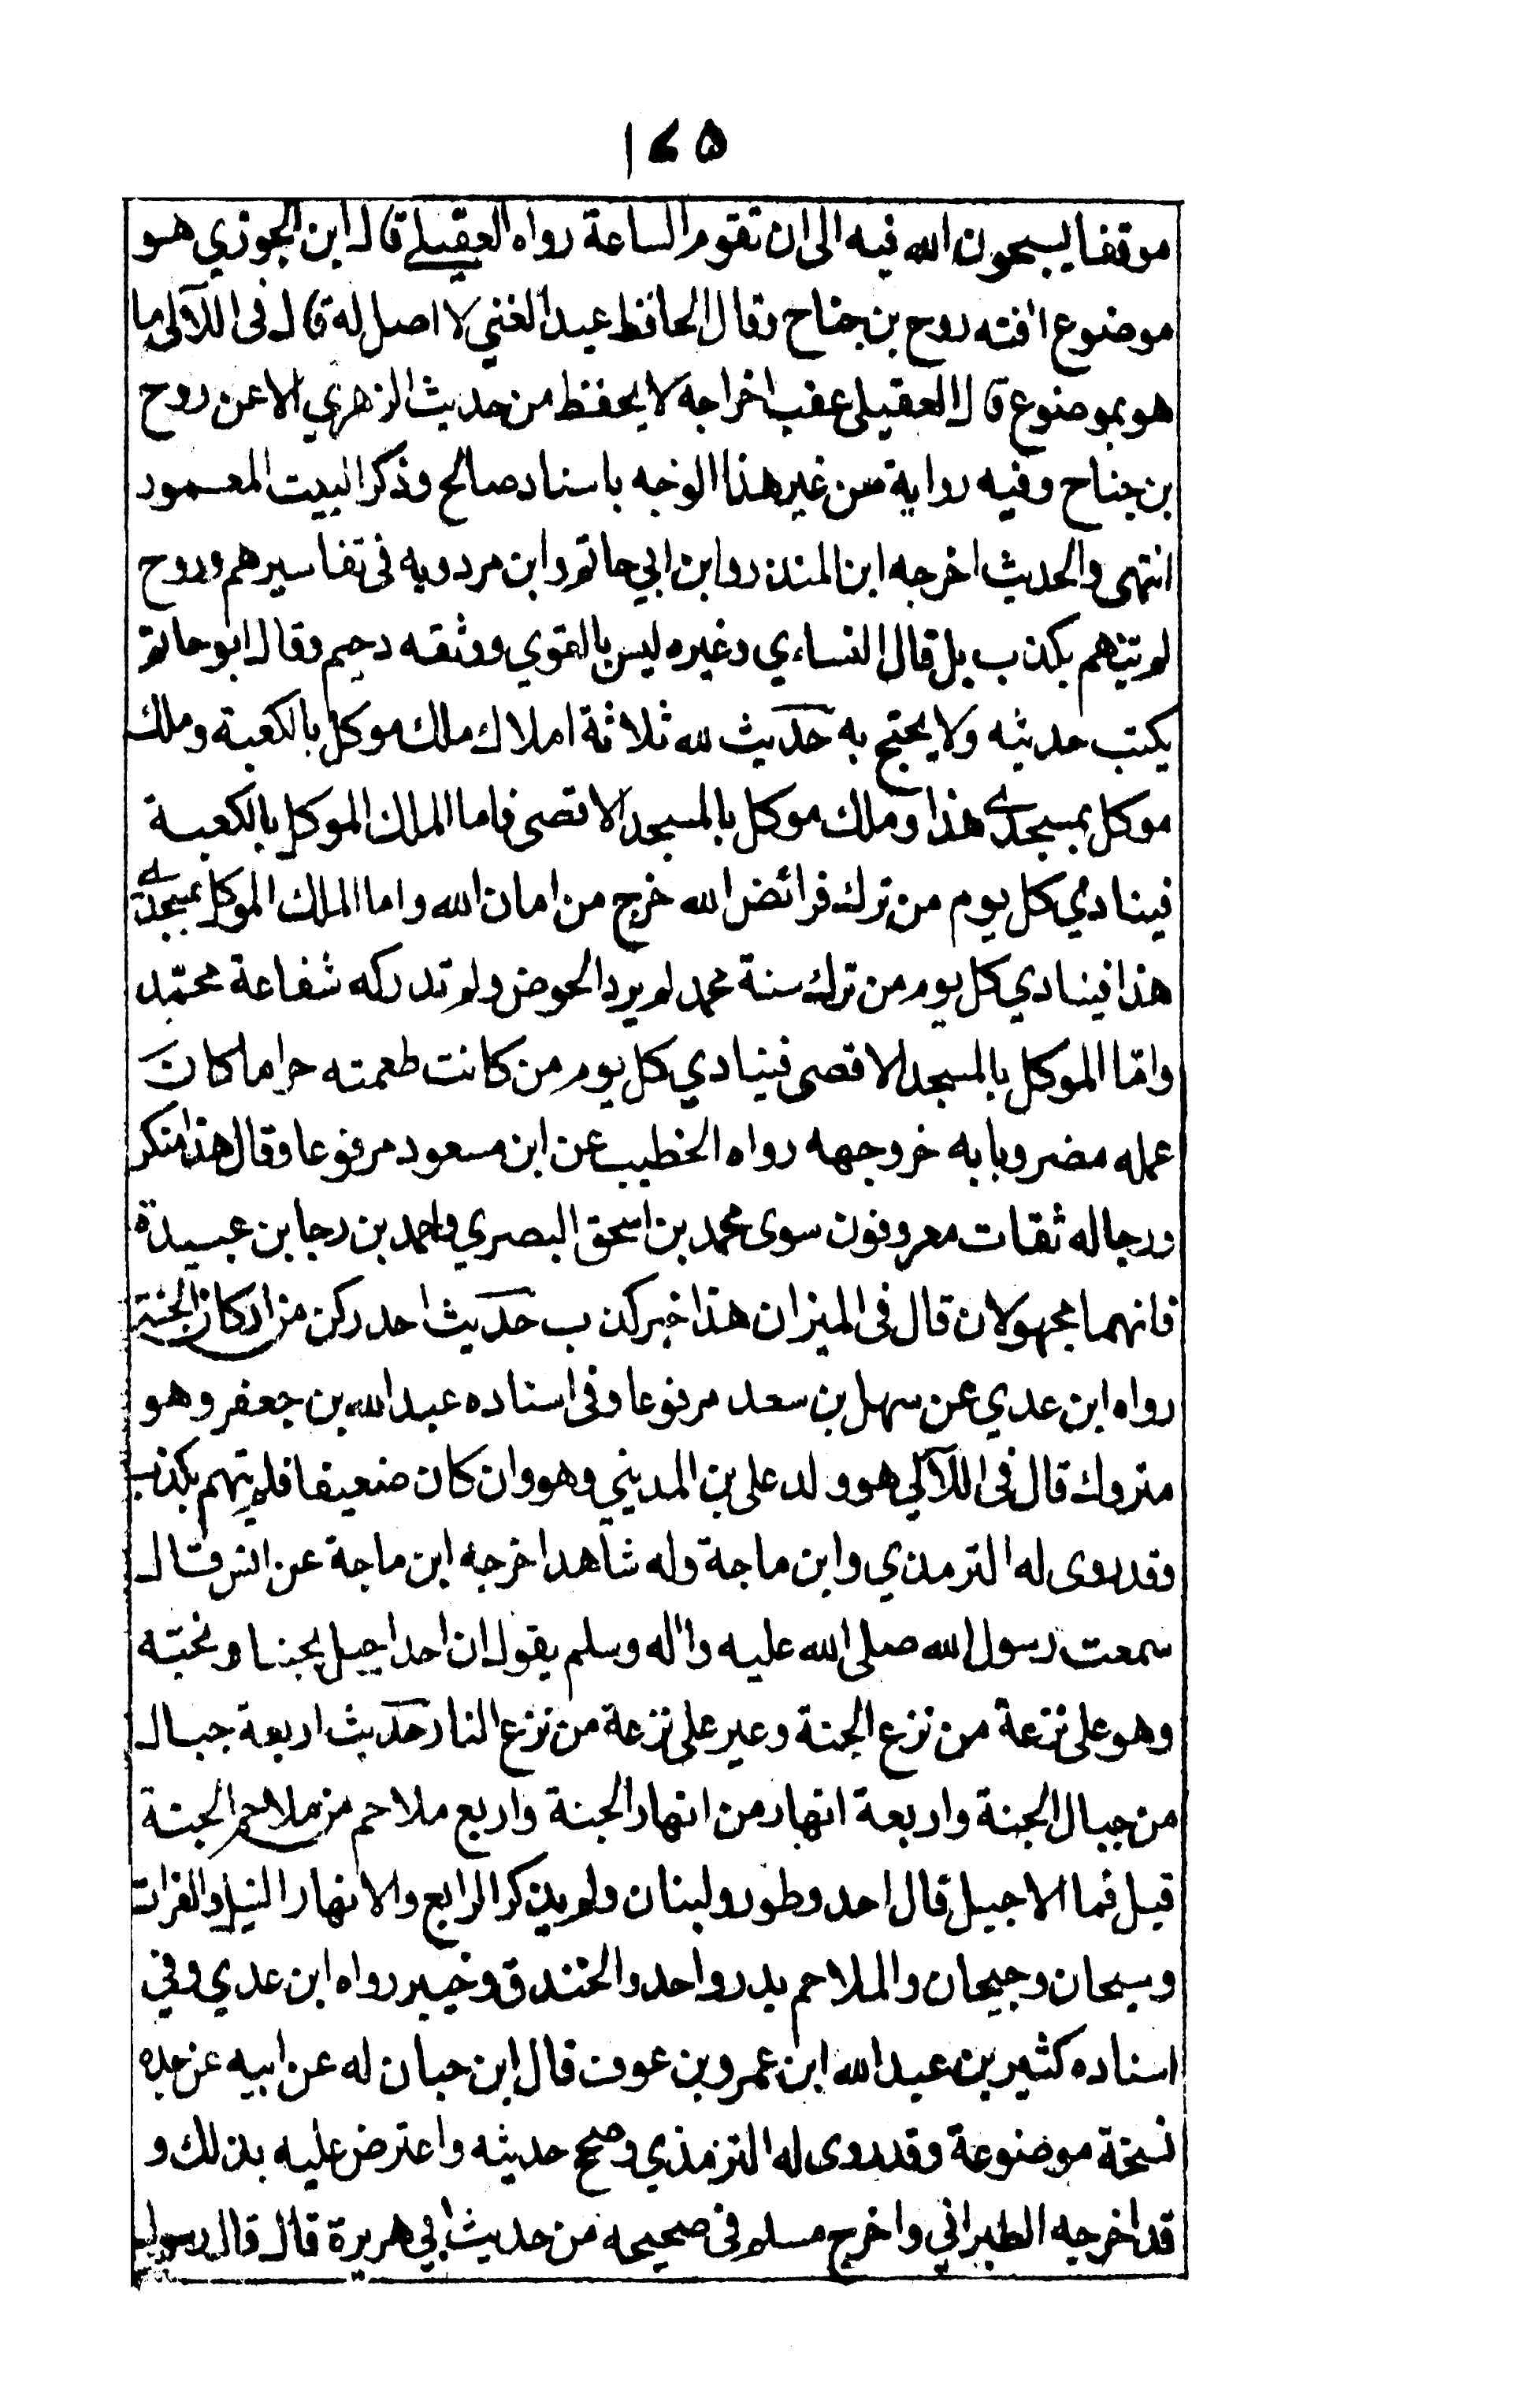 ١٤٥
موقفا يسبحون الله فيه الى ان تقوم الساعة رواه العقيلي قال ابن الجوزي هو
موضوع افته روح بن جناح وقال الحافظ عبد الغني لا اصل له قال فى اللآلى ما
هو بموضوع قال العقيلى عقب اخراجه لا يحفظ من حديث الزهري الا عن روح
بن جناح وفيه رواية من غير هذا الوجه باسناد صالح وذكر البيت المعمور
انتهى والحديث اخرجه ابن المنذر وابن ابي حاتم وابن مردويه فى تفاسيرهم وروح
لم يتهم بكذب بل قال النساءي وغيره ليس بالقوي ووثقه دحيم وقال ابو حاتم
يكتب حديثه ولا يحتج به حديث لله ثلاثة املاك ملك موكل بالكعبة وملك
موكل بمسجدي هذا وملك موكل بالمسجد الاقصى فاما الملك الموكل بالكعبة
فينادي كل يوم من ترك فرائض الله خرج من امان الله واما الملك الموكل بمسجدي
هذا فينادي كل يوم من ترك سنة محمد لم يرد الحوض ولم تدركه شفاعة محمّد
وامّا الموكل بالمسجد الاقصى فينادي كل يوم من كانت طعمته حراما كان
عمله مضروبا به حر وجهه رواه الخطيب عن ابن مسعود مرفوعا وقال هذا منكر
ورجاله ثقات معروفون سوى محمد بن اسحق البصري واحمد بن رجا بن عبيدة
فانهما مجهولان قال فى الميزان هذا خبر كذب حديث احد ركن من اركان الجنة
رواه ابن عدي عن سهل بن سعد مرفوعا وفى اسناده عبد الله بن جعفر وهو
متروك قال فى اللآلي هو ولد على بن المديني وهو وان كان ضعيفا فلم يتهم بكذب
وقد روى له الترمذي وابن ماجة وله شاهد اخرجه ابن ماجة عن انس قال
سمعت رسول الله صلى الله عليه واله وسلم يقول ان احدا جبل يحبنا ونحبّه
وهو على نزعة من نزع الجنة وعير على نزعة من نزع النار حديث اربعة جبال
من جبال الجنة واربعة انهار من انهار الجنة واربع ملاحم من ملاحم الجنة
قيل فما الاجبل قال احد وطور ولبنان ولم يذكر الرابع والانهار النيل والفرات
وسيحان وجيحان والملاحم بدر واحد والخندق وخيبر رواه ابن عدي وفي
اسناده كثير بن عبد الله ابن عمرو بن عوف قال ابن حبان له عن ابيه عن جده
نسخة موضوعة وقد روى له الترمذي وصحح حديثه واعترض عليه بذلك و
قد اخرجه الطبراني واخرج مسلم فى صحيحه من حديث ابي هريرة قال قال رسول